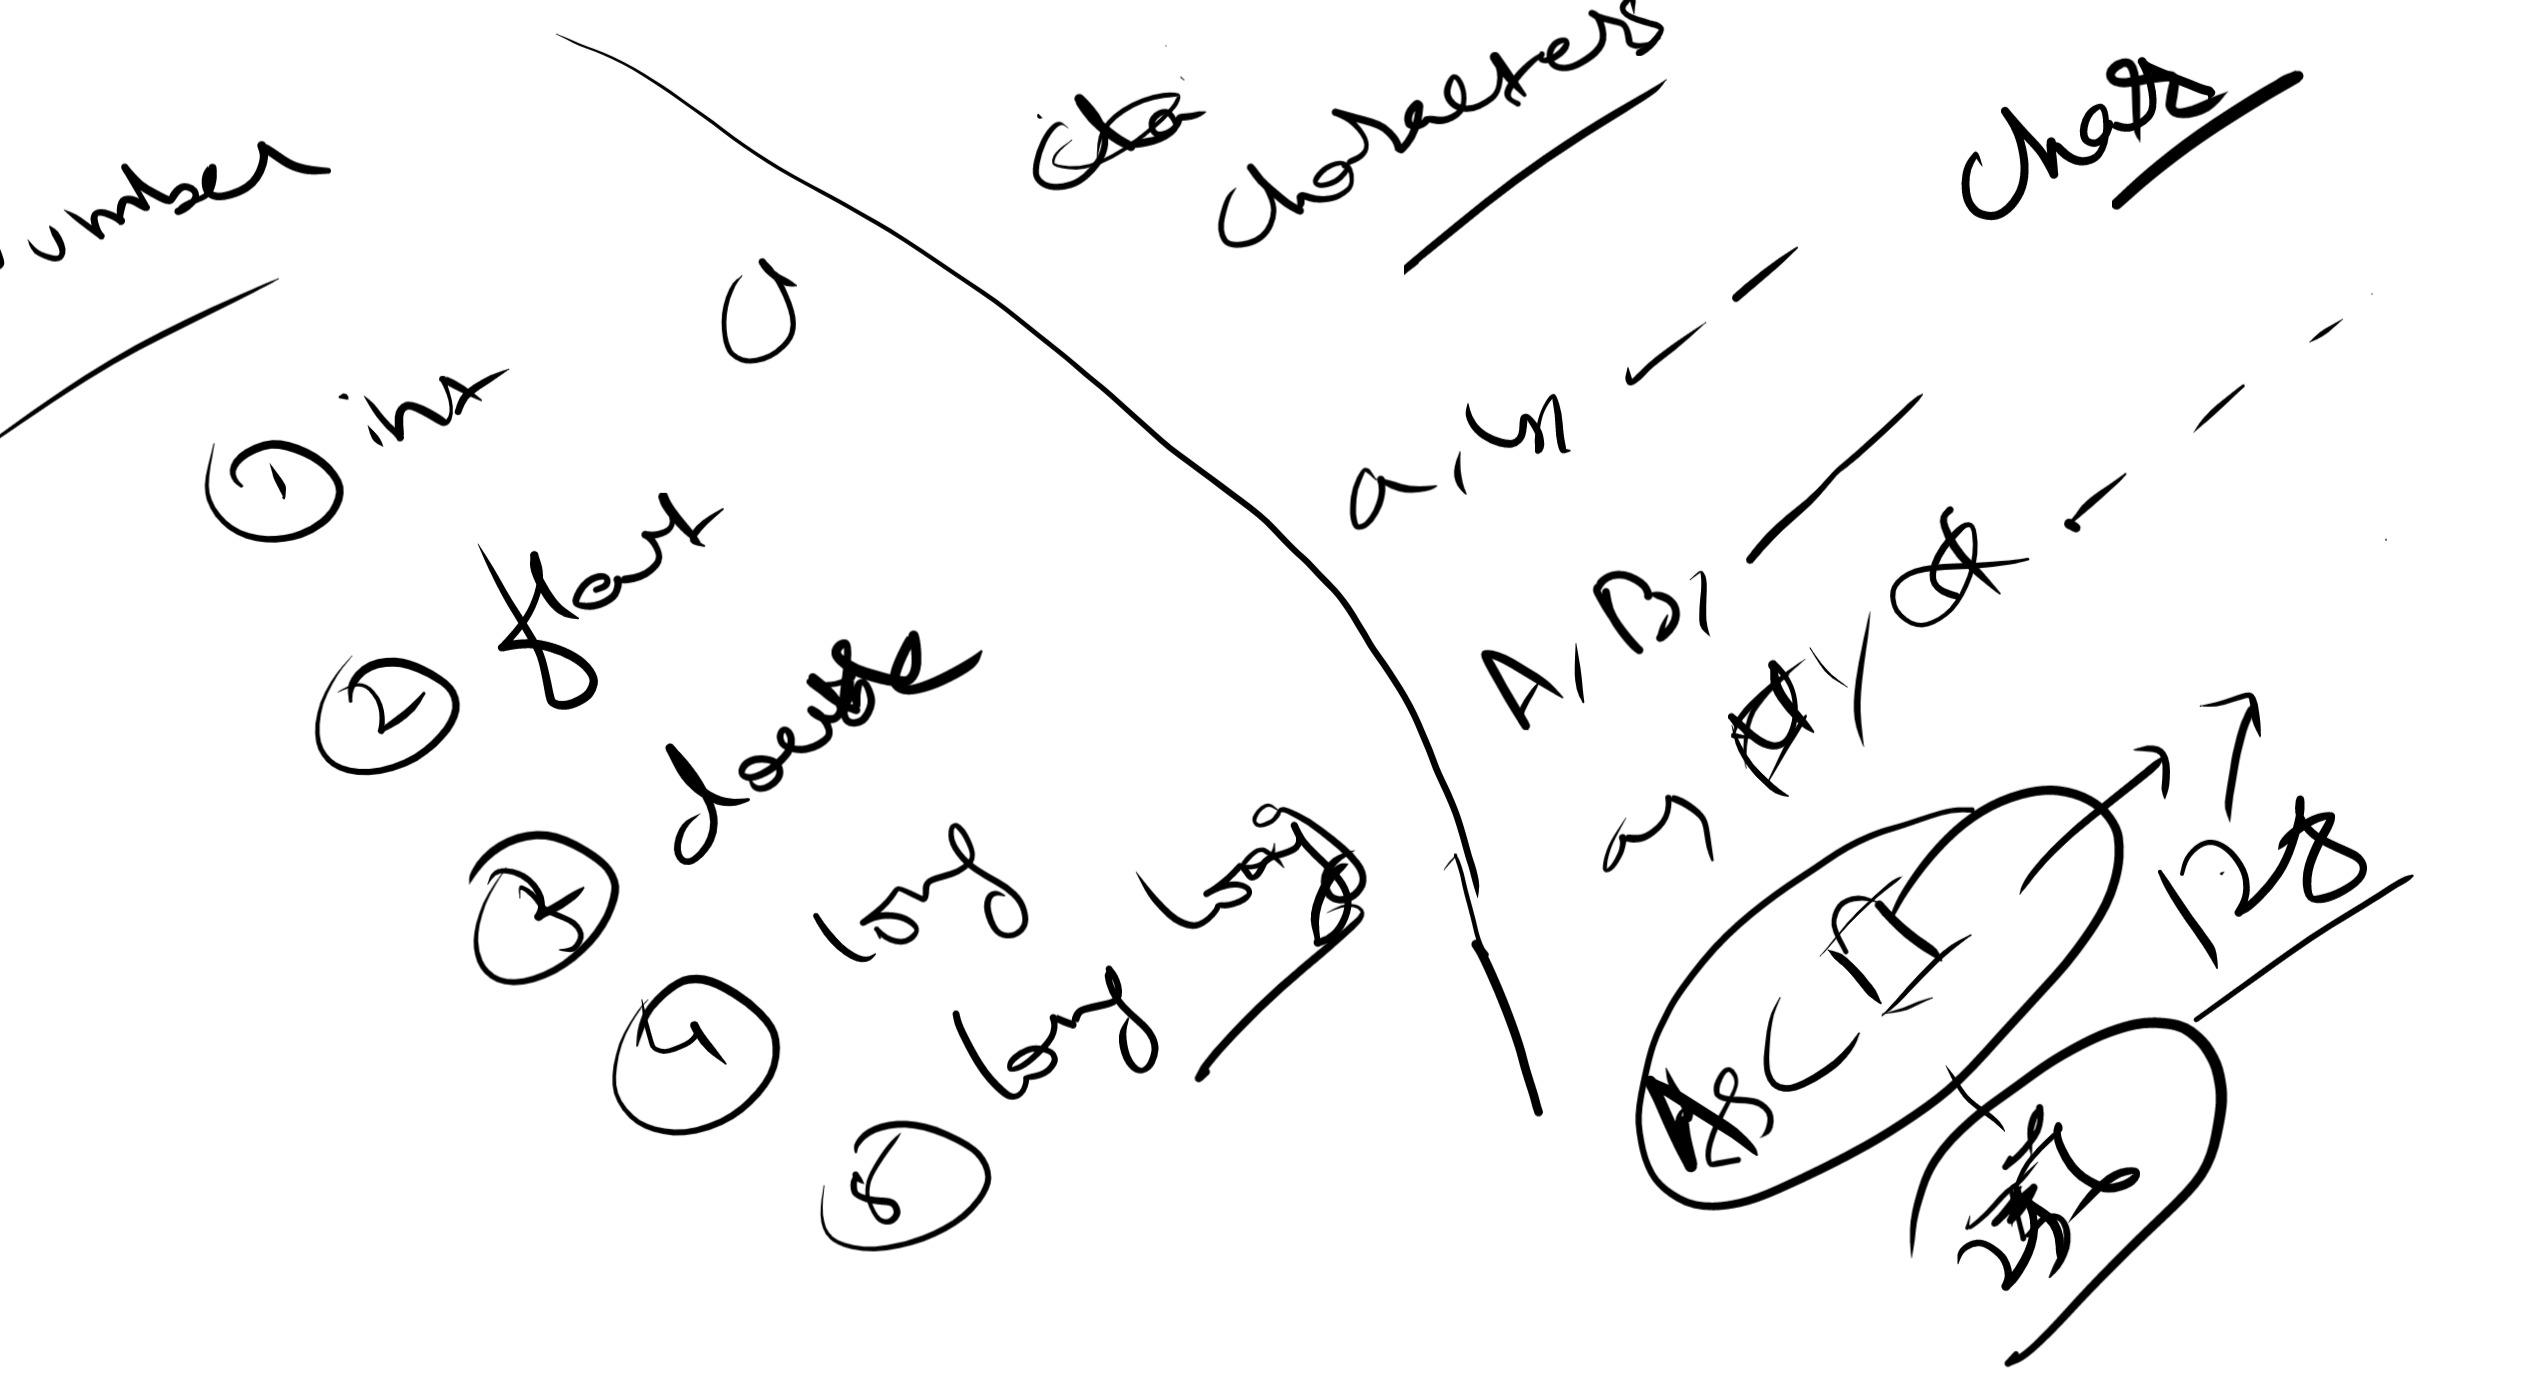 umber
① int
② float
③ double
④ long
⑤ long long
characters
char
a, b
A, B,
@, #, &
ASCII → 128
256